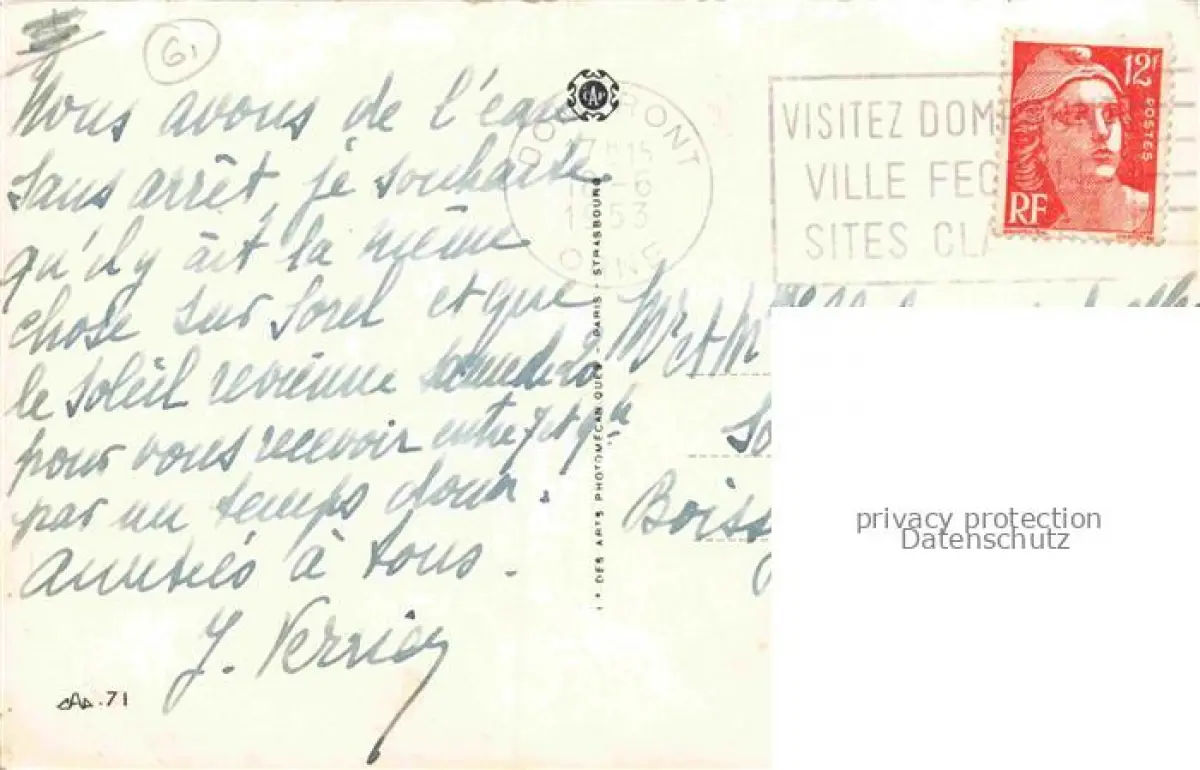 61
Nous avons de l'eau
sans arrêt, je souhaite
qu'il y ait la même
chose sur Sorel et que
le soleil revienne
pour vous recevoir entre 7 et 9h
par un temps doux.
Amitiés à tous.
J. Verrier
CAP.71
CAP
DOMFRONT
17H15
1953
ORNE
VISITEZ DOMFRONT
VILLE FEO
SITES CLA
12F
POSTES
RF
Mr et Mm
So
Boiss
Ie DES ARTS PHOTOMÉCANIQUES - PARIS - STRASBOURG
privacy protection
Datenschutz